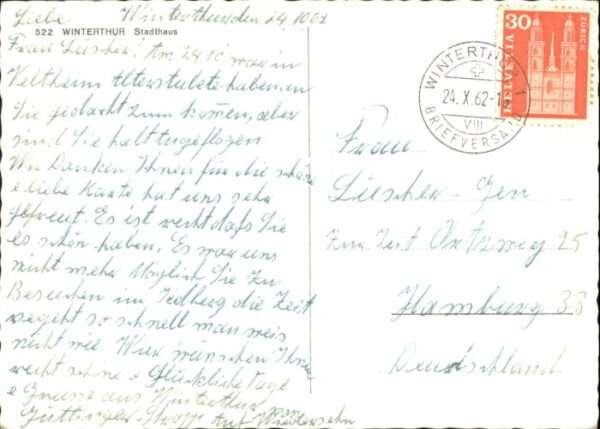 Liebe Winterthur den 24, 10 62
522 WINTERTHUR Stadthaus
Frau Liescher! Am 24 10 war in
Veltheim Altersstubete haben an
Sie gedacht zum komen, aber
sind Sie halt ausgeflogen
Wir Danken Ihnen für die schöne
e liebe Karte hat uns sehr
gefreut. Es ist recht dass Sie
es schön haben. Es war uns
nicht mehr Möglich Sie zu
Besuchen im die Zeit
vergeht so schnell man weis
nicht wie. Wier wünschen Ihnen
recht schöne e Glückliche Tage
e Grüsse aus Winterthur
Auf Wiedersehn
30
HELVETIA
ZÜRICH
WINTERTHUR 1
24. X. 62-1
VIII
BRIEFVERSAND
Frau
Liescher-Gen
Zur Zeit 25
Hamburg 33
Deutschland